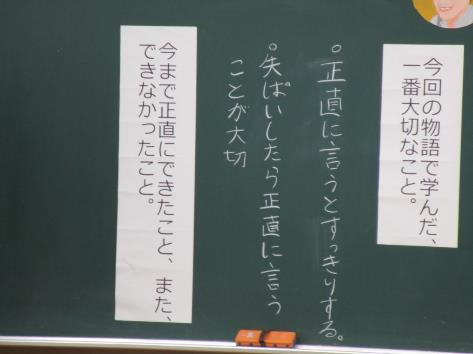 今回の物語で学んだ、
一番大切なこと。
。正直に言うとすっきりする。
。失ぱいしたら正直に言う
ことが大切
今まで正直にできたこと、また、
できなかったこと。